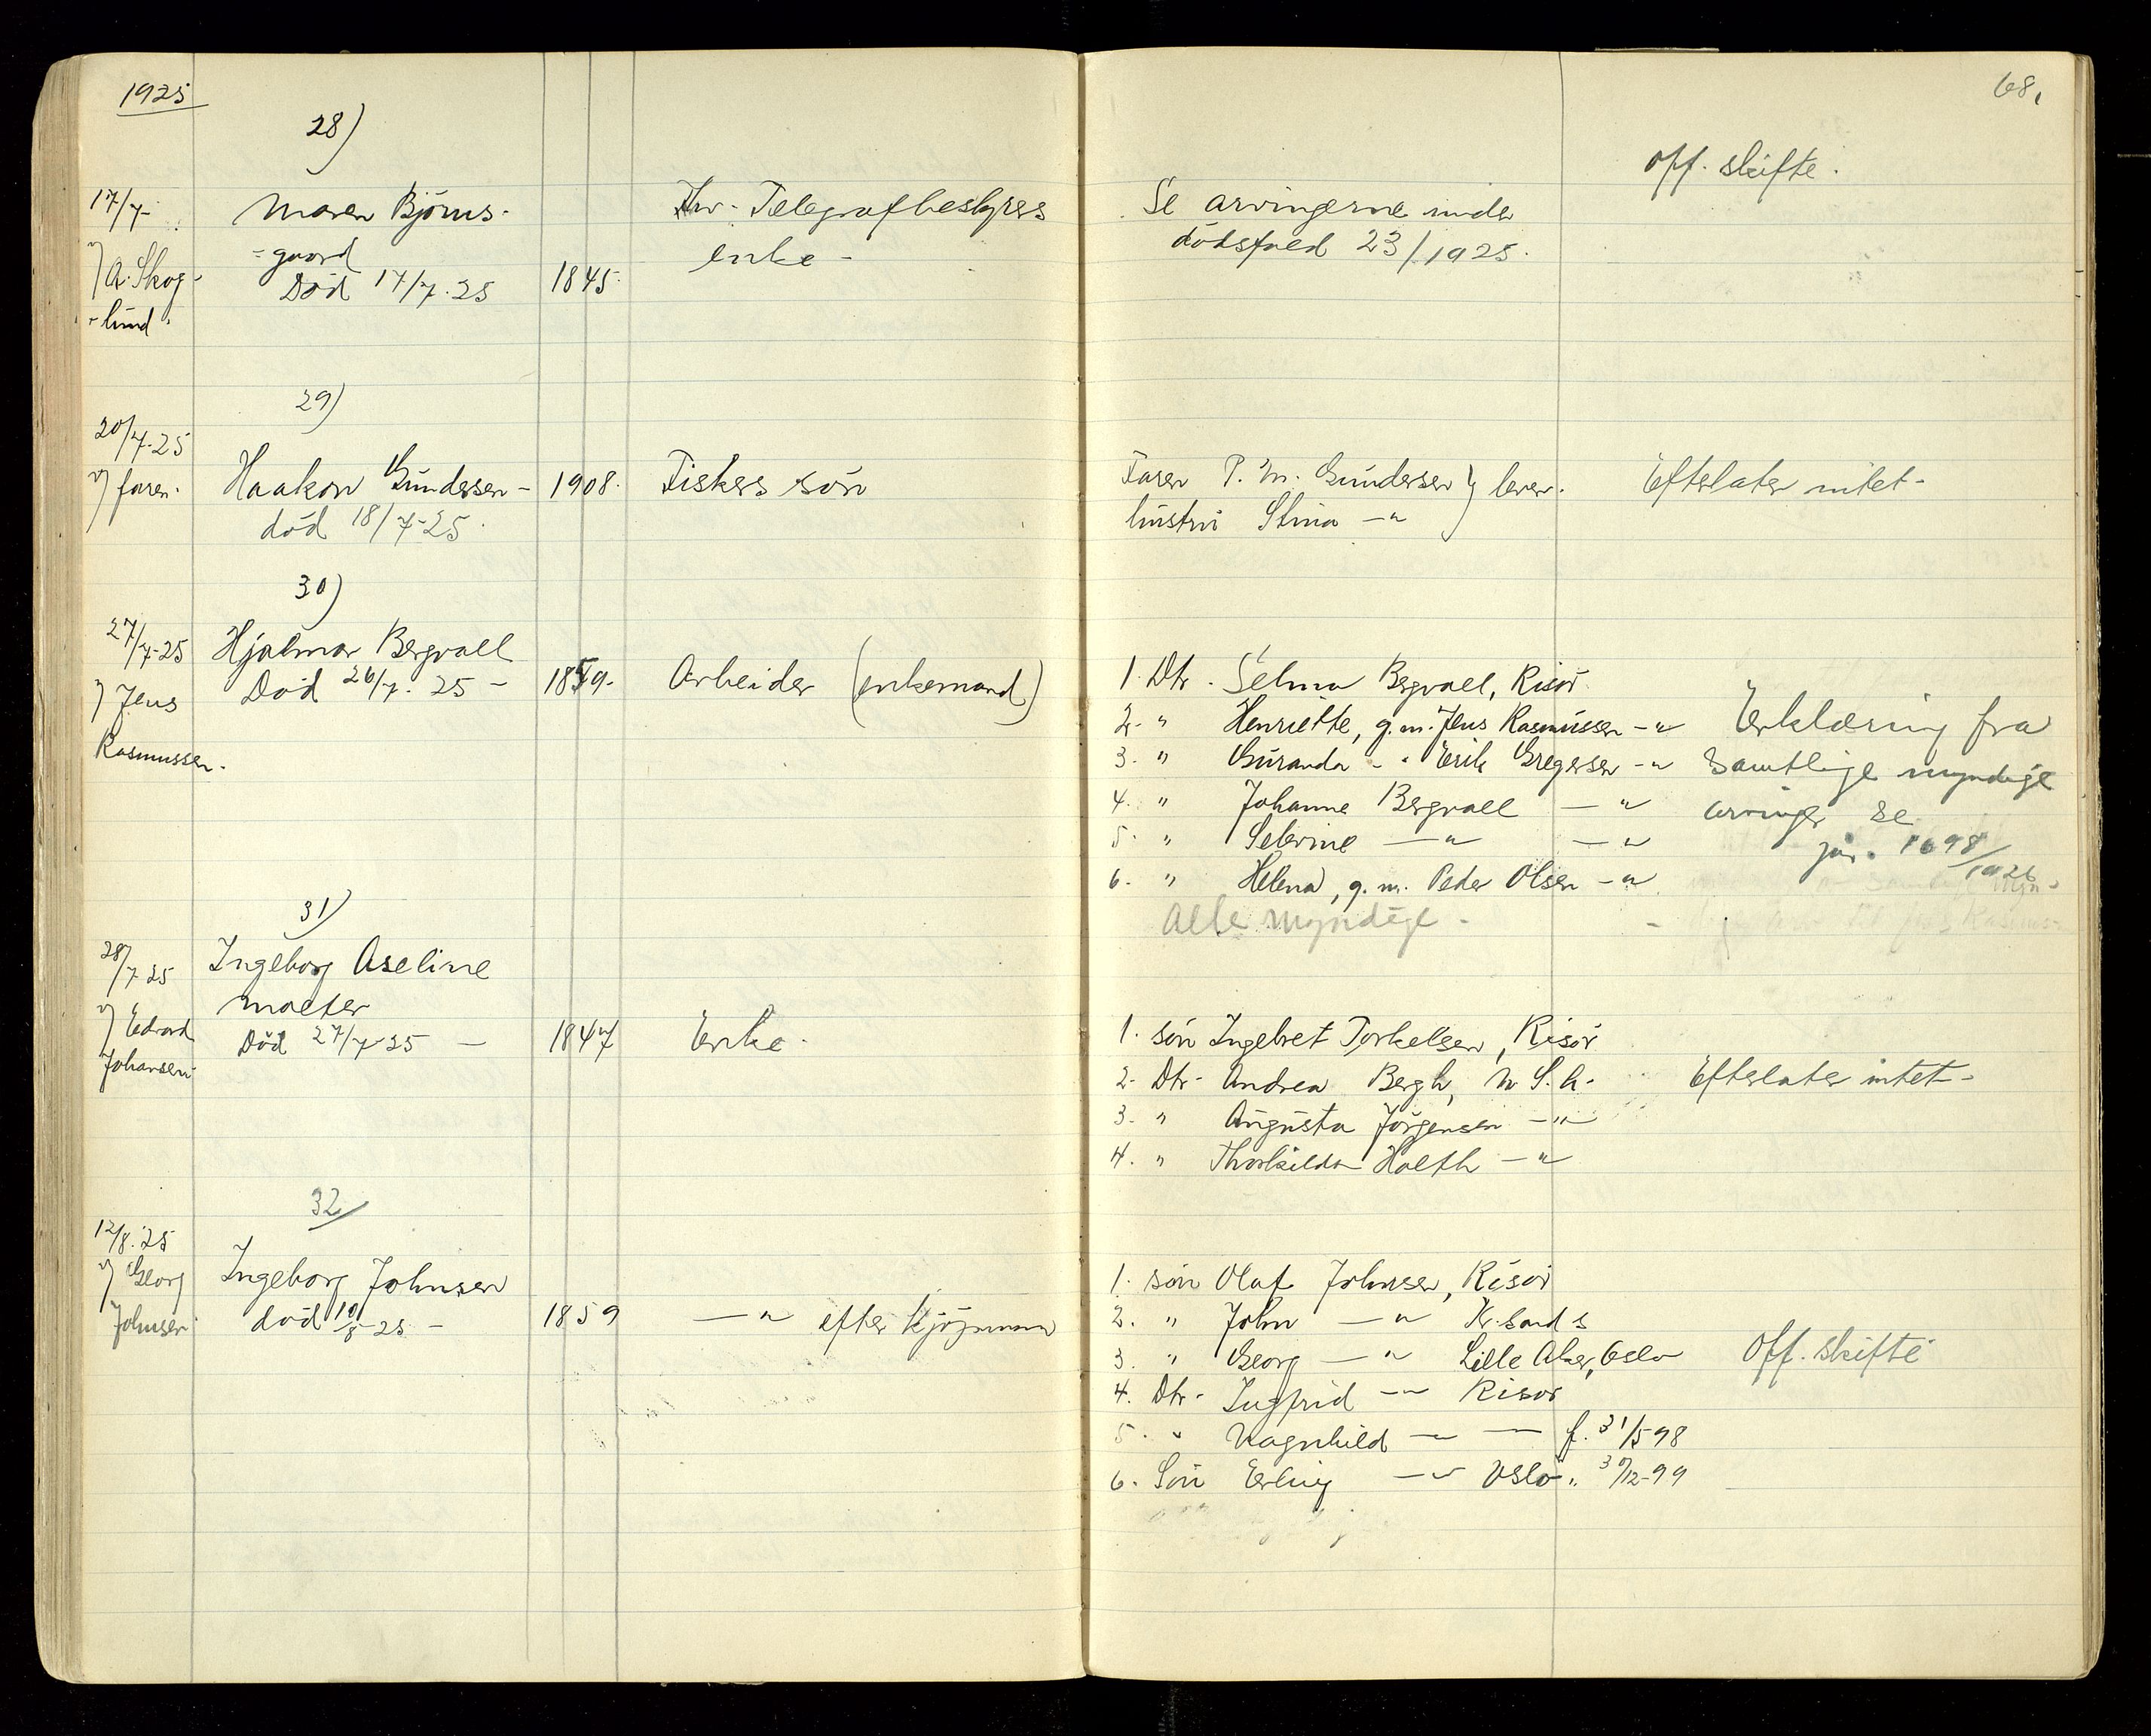 1925
68,
28)
off. skifte.
17/7-
v/ A. Skog-
-lund.
Maren Björns-
-gaard
Död 17/7.25
1845.
Telegrafbestyrers
enke -
Se arvingerne under
dödsfald 23/1925.
29)
20/7.25
v/ faren.
Haakon Gundersen -
död 18/7-25.
1908.
Fiskers sön
Faren P. M. Gundersen } lever.
hustru Stina -"
Efterlater intet -
30)
27/7-25
v/ Jens
Rasmussen.
Hjalmar Bergvall
Död 26/7. 25 -
Arbeider (enkemand)
1. Dtr. Selma Bergvall, Risör.
2. " Henriette, g.m. Jens Rasmussen -"
3. " Guranda - " Erik Gregersen -"
4. " Johanne Bergvall -"
5. " Severine -" -"
6. " Helena, g.m. Peder Olsen -"
Alle myndige -
Erklæring fra
samtlige myndige
arvinger se
jnr. 1698/1926
31)
28/7 25
v/ Edvard
Johansen
Ingeborg Aseline
Molter
Död 27/7-25 -
1847
Enke.
1. sön Ingebret Torkelsen, Risör
2. Dtr. Andrea Bergh, N S. h.
3. " Augusta Jörgensen -"
4. " Thorkilda Holth -"
Efterlater intet -
32/
12/8.25
v/ Georg
Johnsen
Ingeborg Johnsen
död 10/8-25 -
1859
-" efter Kjöpmann
1. sön Olaf Johnsen, Risör
2. " John -" Kr.sand s
3. " Georg -" Lille Aker, Oslo
4. Dtr. Ingfrid -" Risör
5. " Ragnhild -" - f. 31/5 98
6. Sön Erling -" Oslo " 30/12-99
Off. skifte